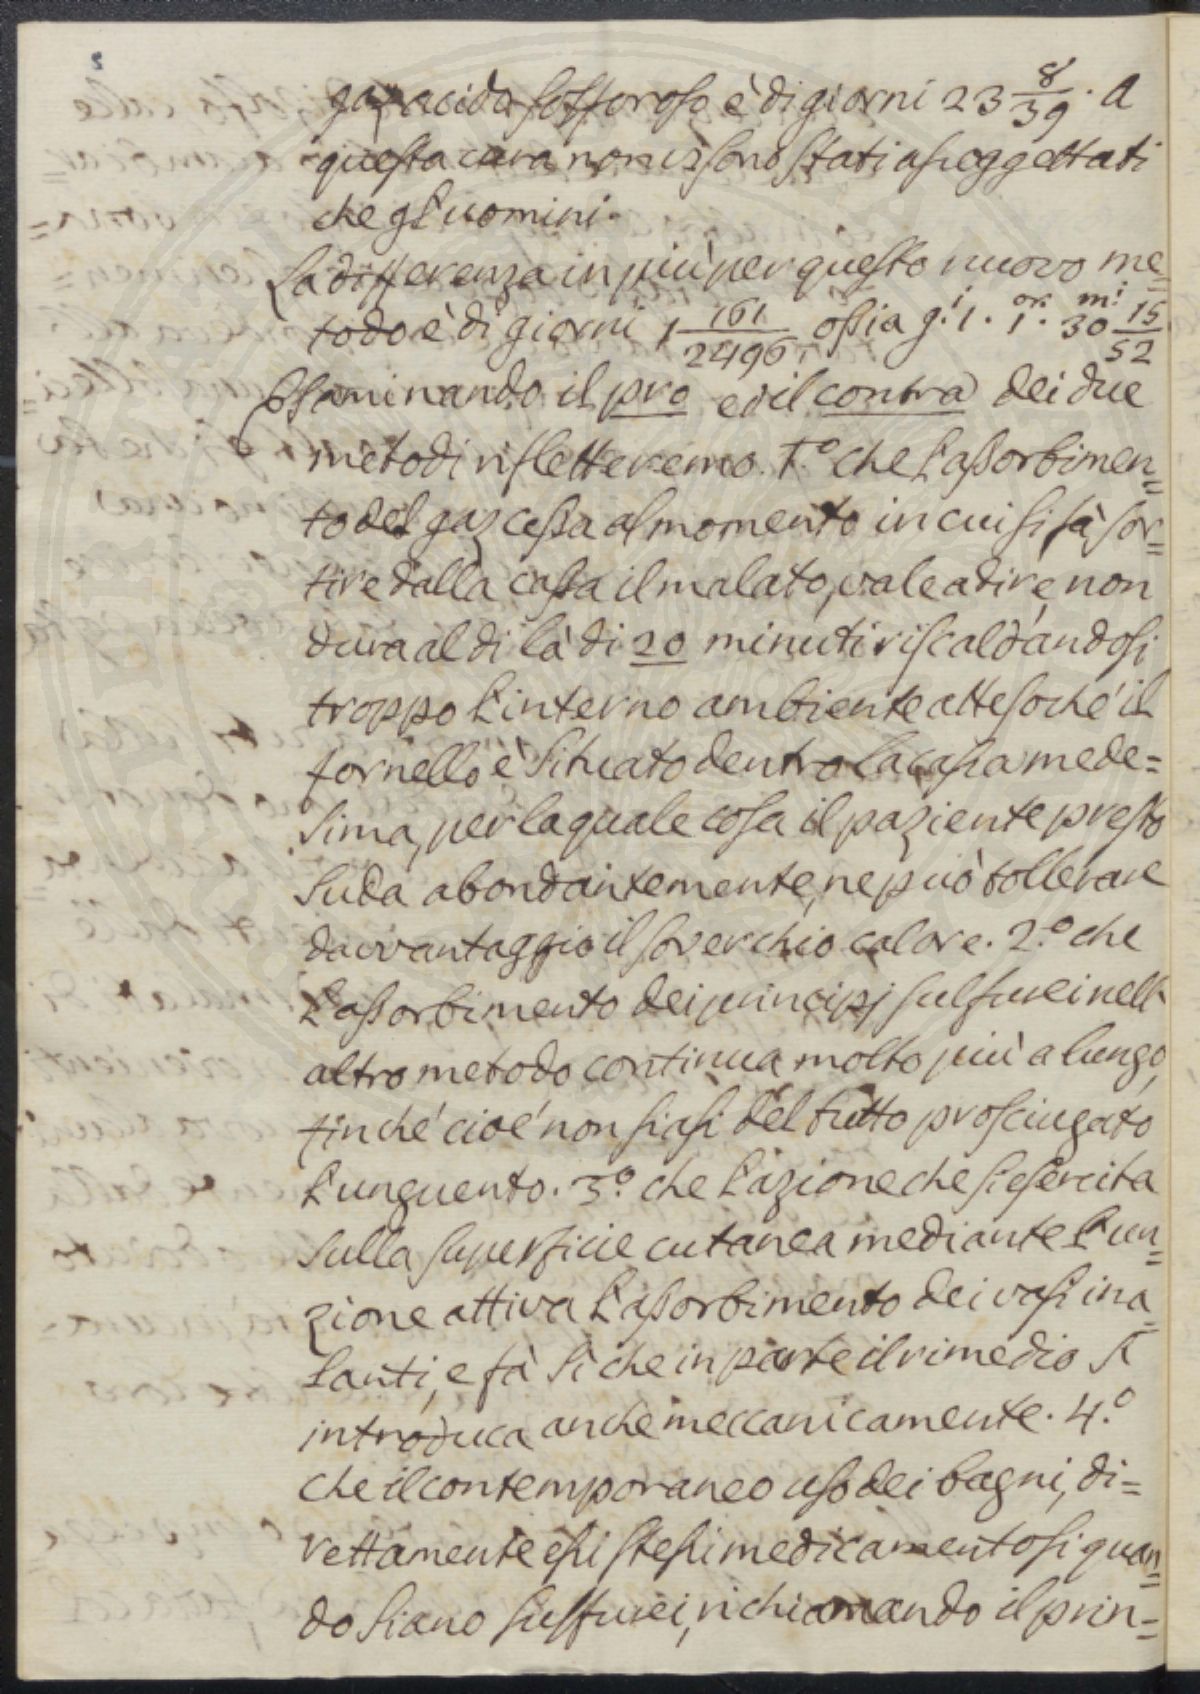 gaz acido solforoso è di giorni 23 8/39. A
questa cura non vi sono stati assoggettati
che gl'uomini.
La differenza in più per questo nuovo me=
todo è di giorni 1 161/2496, ossia g.i 1. or. 1. m.i 30 15/52
Essaminando il pro ed il contra dei due
metodi rifletteremo. 1.o che l'assorbimen=
to del gaz cessa al momento in cui si fà sor=
tire dalla cassa il malato, vale a dire, non
dura al di là di 20 minuti riscaldandosi
troppo l'interno ambiente attesoché il
fornello è situato dentro la cassa mede=
sima, per la quale cosa il paziente presto
suda abondantemente, ne può tollerare
davvantaggio il soverchio calore. 2.o che
l'assorbimento dei principj sulfurei nell'
altro metodo continua molto più a lungo,
finché cioé non siasi del tutto prosciugato
l'unguento. 3.o che l'azione che si esercita
sulla superficie cutanea mediante l'un=
zione attiva l'assorbimento dei vasi ina=
lanti, e fà sì che in parte il rimedio s'
introduca anche meccanicamente. 4.o
che il contemporaneo uso dei bagni, di=
rettamente essi stessi medicamentosi quan=
do siano sulfurei, richiamando il prin=